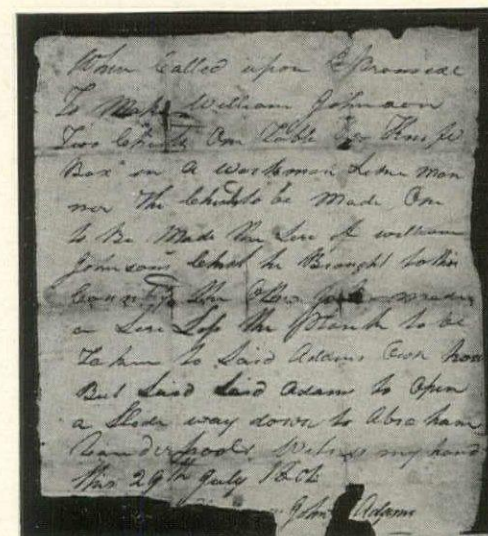 When Called upon I Promise
To Make William Johnson
Two Chists One Table One Knife
Box in a workman Like man
ner the Chists to be Made One
to be Made the Sise of william
Johnsons Chist he Brought to this
Country the Other to be made
a Sise Less the Plank to be
Taken to Said Adams Own hous
But Said Adam to Open
a Slide way down to Abraham
Vanderpools Witness my hand
this 29th July 1802
John Adams